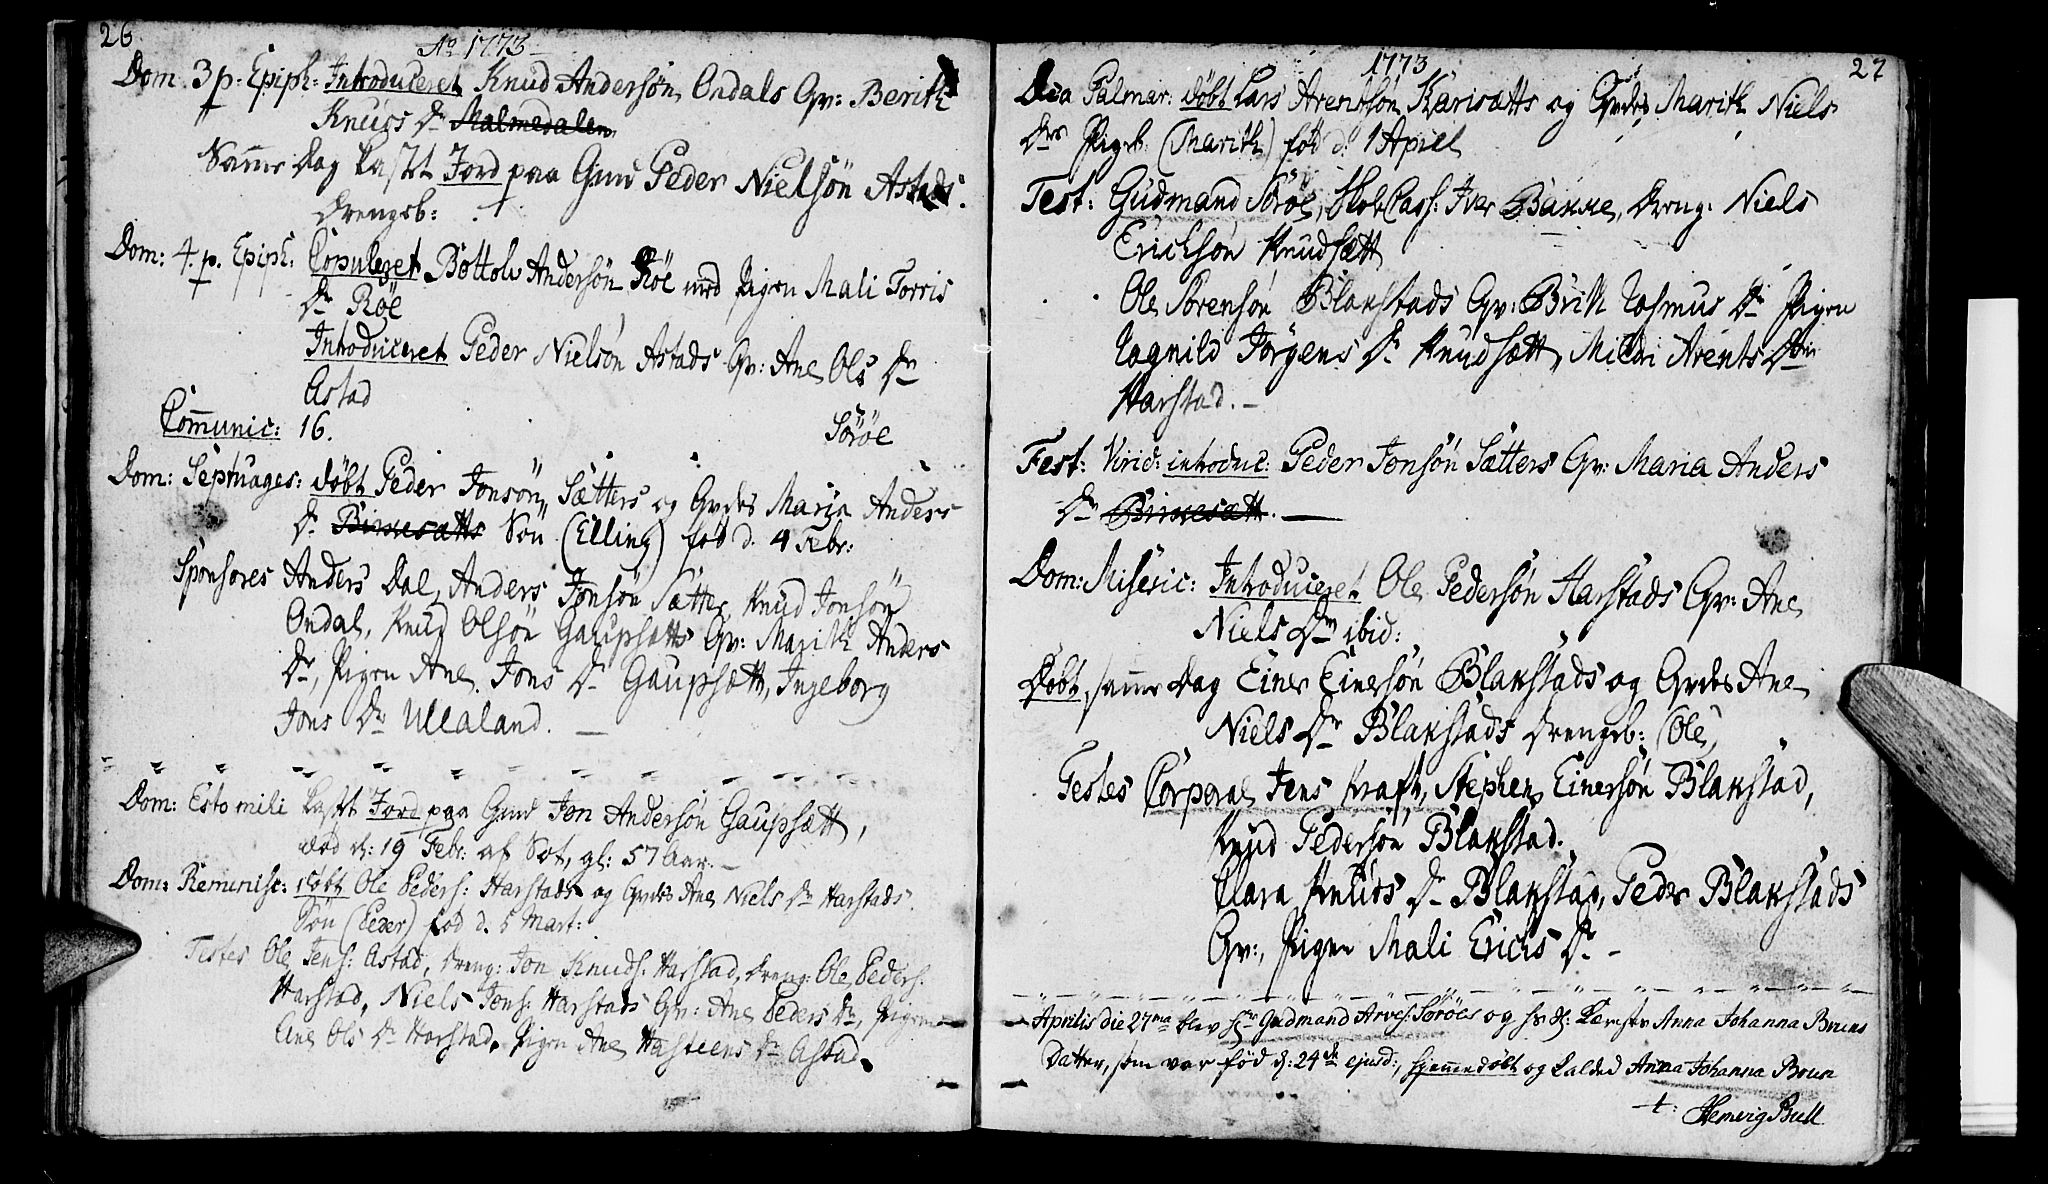 26
Ao 1773
Dom. 3 p. Epiph: Introduceret Knud Andersön Ondals Qv: Berith
Knuds Dr Malmedalen
Samme Dag kastt Jord paa Gmd Peder Nielsön Astads
drengeb:
Dom: 4. p. Epiph: Copuleret Bottolv Andersön Röe med Pigen Mali Torris
Dr Röe
Introduceret Peder Nielsön Astads Qv: Ane Ols Dr
Astad
Com̄unic: 16.
Söröe
Dom: Septuages: döbt Peder Jonsön Sætters og Qvdes Maria Anders
Dr Birkesætts Sön (Elling) föd d. 4 Febr:
Sponsores Anders Dal, Anders Jonsön Sætter, Knud Jonsön
Ondal, Knud Olsön Gaupsætts Qv: Marith Anders
Dr, Pigen Ane Jons Dr Gaupsætt, Ingeborg
Jons Dr Ullaland.
Dom: Esto mihi kastt Jord paa Gmd Jon Andersön Gaupsætt,
död d: 19 Febr: af Sot, gl: 57 Aar.
Dom: Reminisc: döbt Ole Peders: Harstads og Qvdes Ane Niels Dr Harstads
Sön (Peder) föd d. 5 Mart:
Testes Ole Jens: Astad, Dreng: Jon Knuds: Harstad, Dreng: Ole Peders:
Harstad, Niels Jons: Harstads Qv: Ane Peders Dr, Pigen
Ane Ols Dr Harstad, Pigen Ane Hasteens Dr Astad.
1773
27
Dca Palmar: döbt Lars Arentsön Karisætts og Qvdes Marith Niels
Drs Pigeb. (Marith) föd d. 1 April
Test: Gudmand Söröe, Iver Bakke, Dreng: Niels
Ericksön Knudsætt
Ole Sörensön Blakstads Qv: Brith Rasmus Dr Pigen
Ragnild Jörgens Dr Knudsætt, Mildri Arents Dr
Harstad.
Fest: Virid: introduc: Peder Jonsön Sætters Qv: Maria Anders
Dr Birkesætt.
Dom: Miseric: Introduceret Ole Pedersön Harstads Qv: Ane
Niels Dr ibid:
Döbt samme Dag Einer Einersön Blakstads og Qvdes Ane
Niels Dr Blakstads drengeb: (Ole)
Testes Corporal Jens Kraft, Stephen Einersön Blakstad,
Knud Pedersön Blakstad.
Clara Knuds Dr Blakstad, Peder Blakstads
Qv:, Pigen Mali Erichs Dr
Aprilis die 27ma blev Sr Gudmand Arves: Söröes og Kæreste Anna Johanna Bruns
Datter, som var föd d: 24de ejusd:, hjemmedöbt og kalded Anna Johanna Brun
t: Hemvig Bull